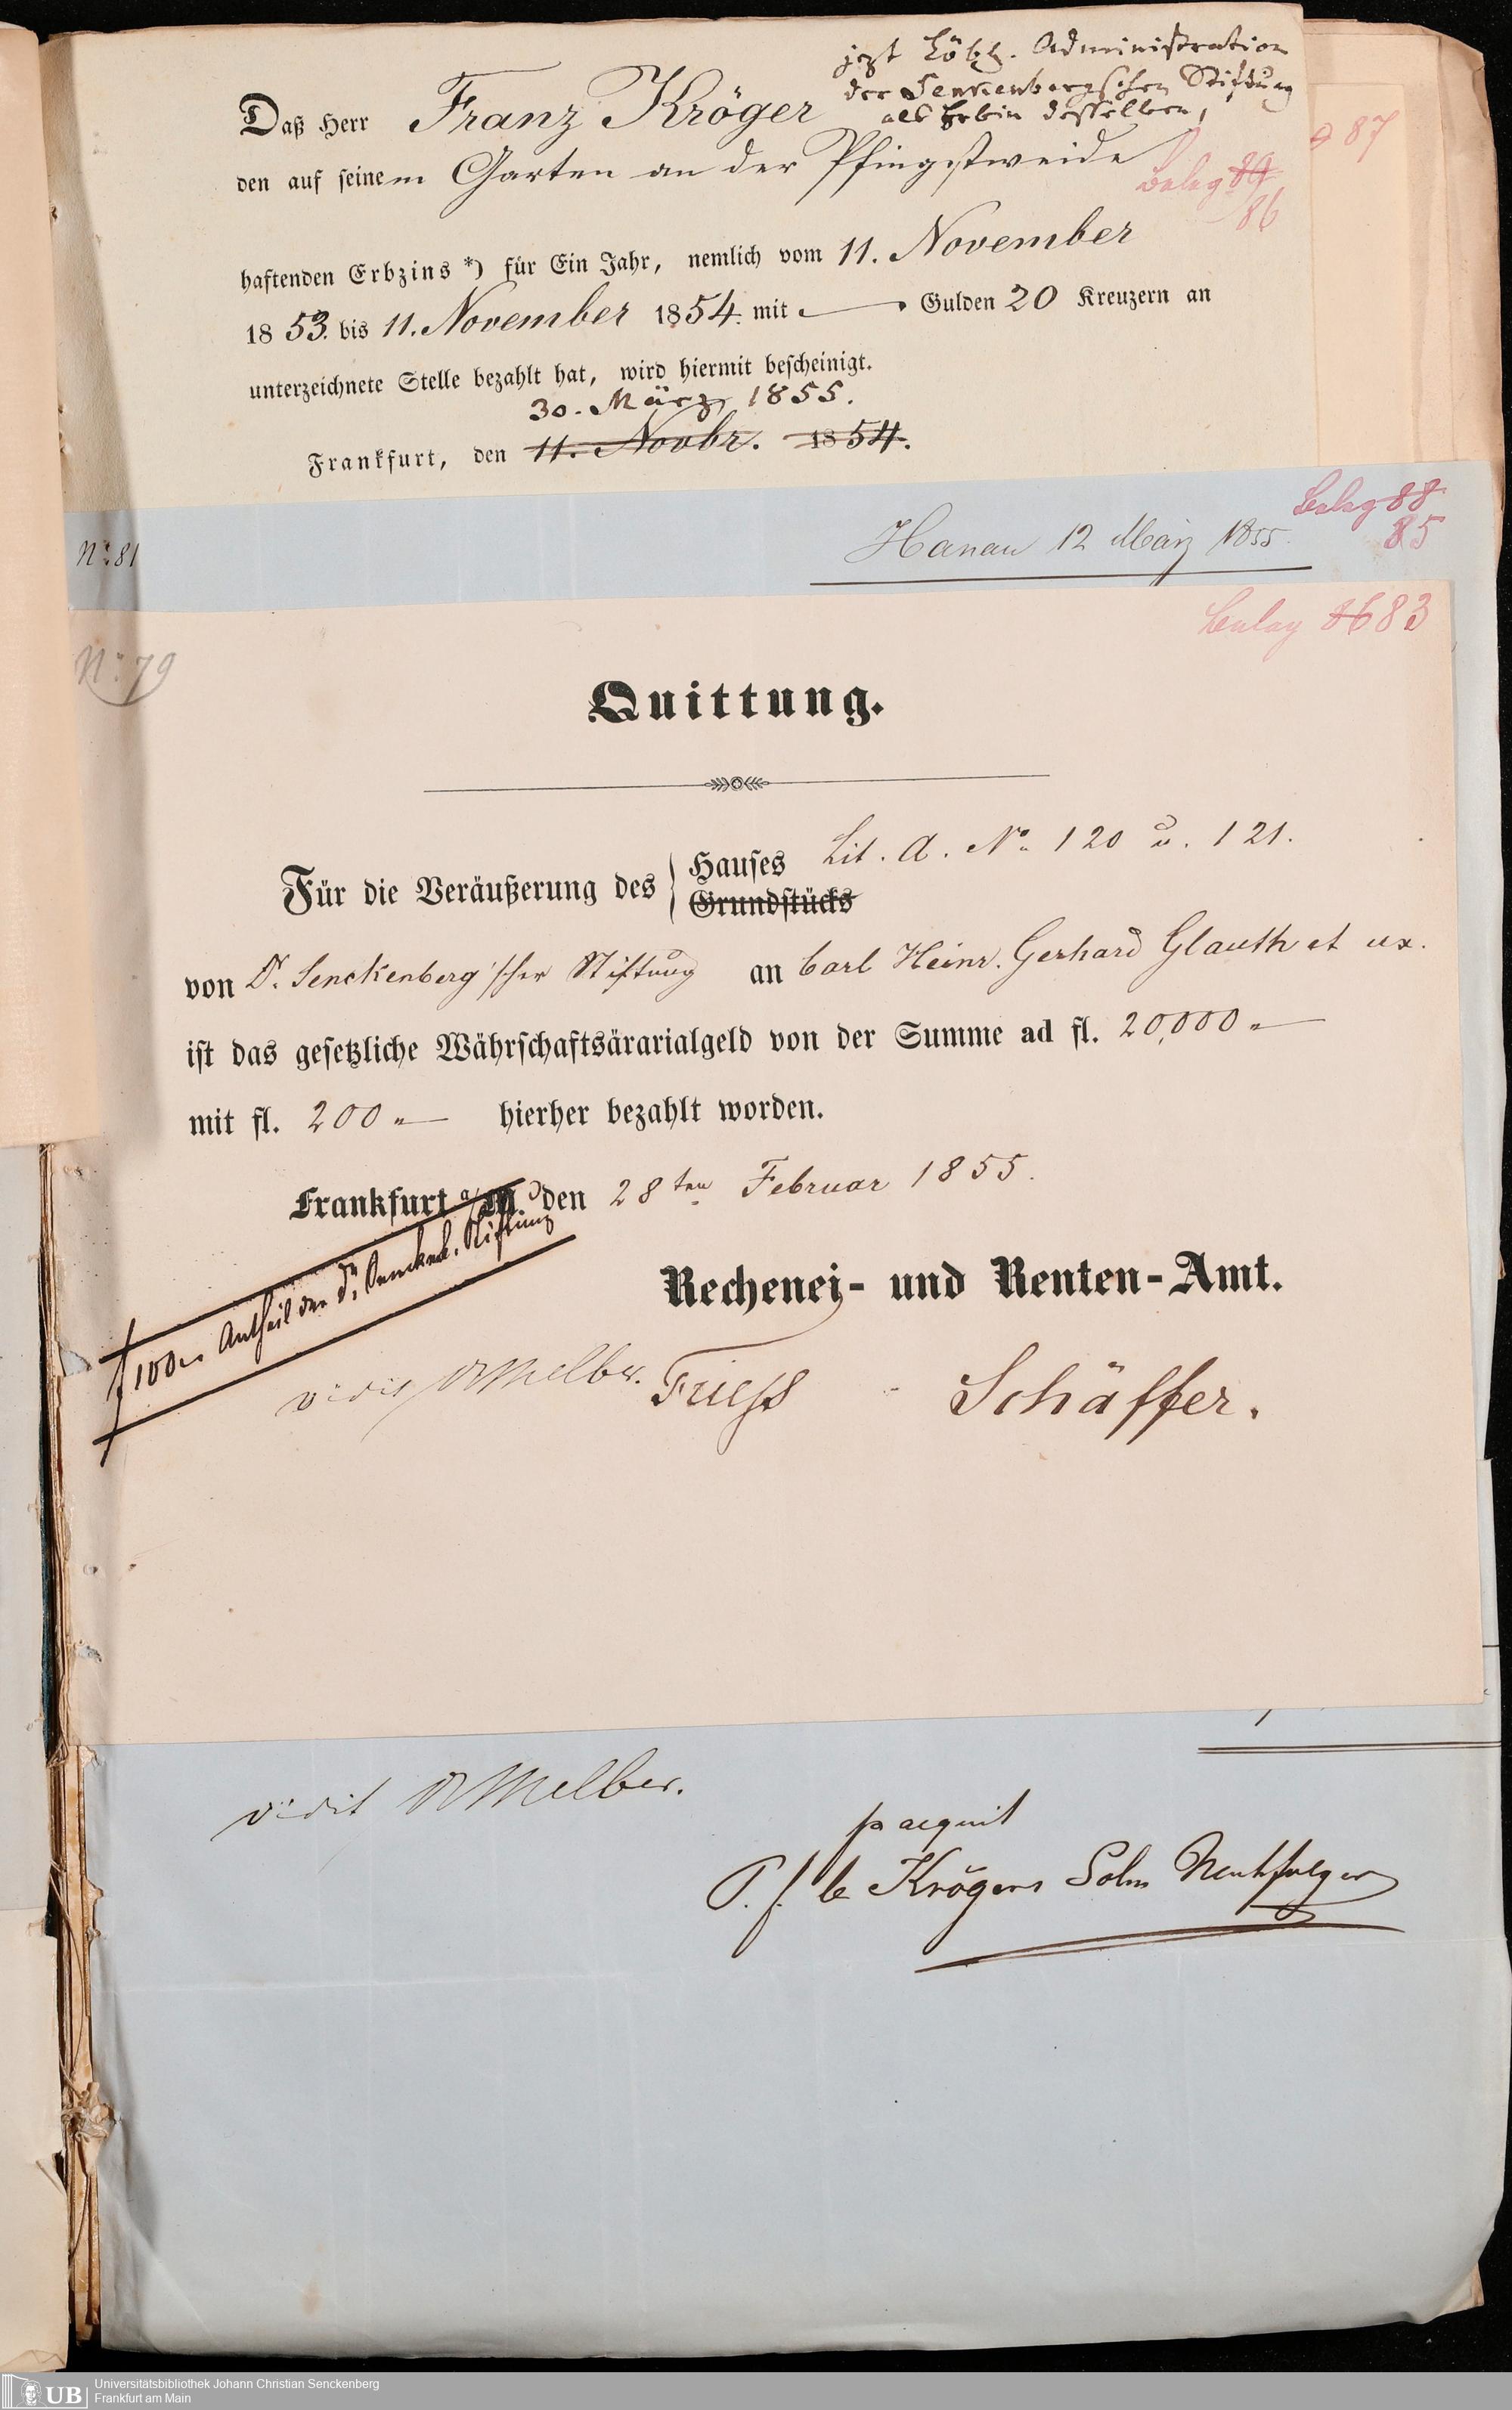 jezt Löbl. Administration
der Senkenbergschen Stiftung
als Erbin desselben,
Daß Herr Franz Kröger
den auf seinem Garten an der Pfingstweide
87
Beleg 89
86
haftenden Erbzins *) für Ein Jahr, nemlich vom 11. November
1853. bis 11. November 1854. mit — Gulden 20 Kreuzern an
unterzeichnete Stelle bezahlt hat, wird hiermit bescheinigt.
30. März 1855.
Frankfurt, den 11. Novbr. 1854.
Beleg 88
85
No. 81
Hanau 12 März 1855.
Beleg 86 83
No. 79
Quittung.
Für die Veräußerung des Hauses Lit. A. No. 120 u. 121.
Grundstücks
von Dr. Senckenberg'scher Stiftung an Carl Heinr. Gerhard Glauth et ux.
ist das gesetzliche Währschaftsärarialgeld von der Summe ad fl. 20,000 „—
mit fl. 200 „— hierher bezahlt worden.
Frankfurt a/M. den 28ten Februar 1855.
f 100 „ Antheil der Dr. Senckenb. Stiftung
Rechenei- und Renten-Amt.
vidit Dr Melber. Friess Schäffer.
vidit Dr Melber.
p acquit
Krögers Sohn Nachfolger
Universitätsbibliothek Johann Christian Senckenberg
Frankfurt am Main
UB